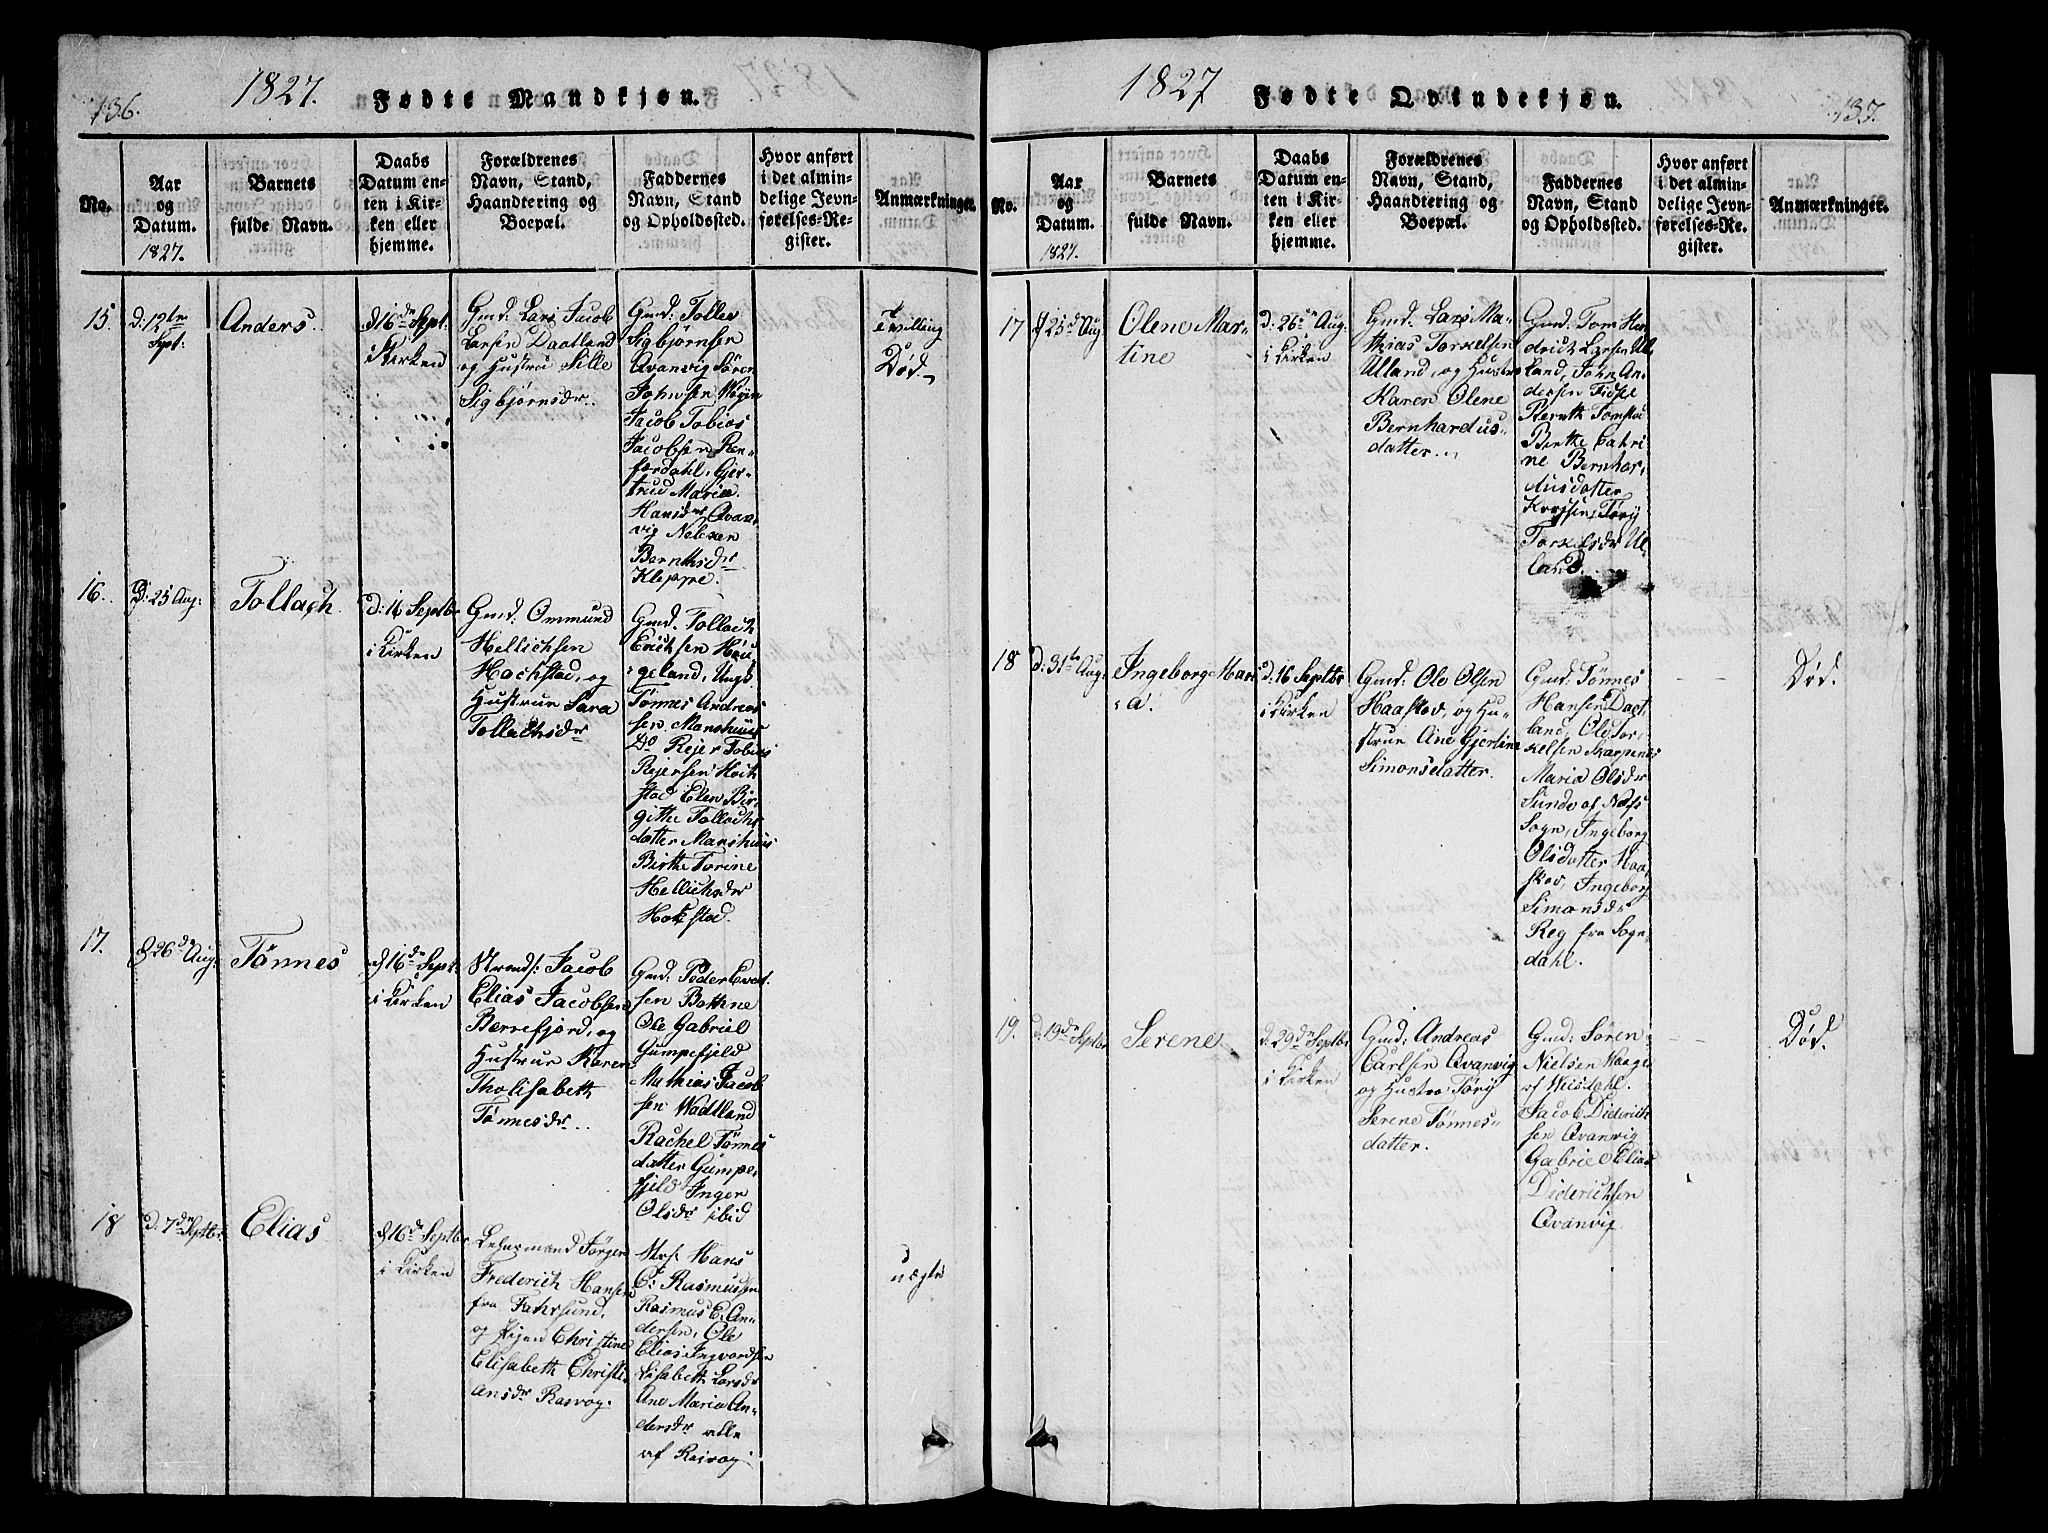 136.
1827.
Fødte Mandkjøn.
No.
Aar
og
Datum.
1827.
Barnets
fulde Navn.
Daabs
Datum en-
ten i Kir-
ken eller
hjemme.
Forældrenes
Navn, Stand,
Haandtering og
Boepæl.
Faddernes
Navn, Stand
og Opholdssted.
Hvor anført
i det almin-
delige Jevn-
førelses-Re-
gister.
Anmærkninger.
15.
d: 12te
Sept:
Anders.
d 16de Sept.
i Kirken
Gmd: Lars Jacob
Larsen Daatland
og Hustru Sille
Sigbjørnsdr.
Gmd: Tollev
Sigbjørnsen
Qvanvig Sören
Johnsen
Jacob Tobias
Jacobsen
Gjer-
trud Marie
Hansdr Qvan-
vig
Berntsdr
Kleppe.
Tvilling
Død
16.
D: 25 Aug:
Tollach.
D: 16 Septbr
i Kirken
Gmd: Ommund
Hellichsen
Hochstad, og
Hustrue Sara
Tollachsdr
Gmd: Tollach
Erichsen Hau-
geland, Ungk.
Tønnes Andreas
sen Manshuus
Do Rejer Tobias
Rejersen Hock
stad Elen Bir-
githe Tollachs
datter Manshuus
Birthe Torine
Hellichsdr
Hokstad.
17.
d 26de Aug:
Tønnes
d 16de Sept.
i Kirken
Strands: Jacob
Elias Jacobsen
Berrefjord, og
Hustrue Karen
Tholisabeth
Tønnesdr.
Gmd: Peder Evert
sen Bothne
Ole Gabriel
Gumpefjeld
Mathias Jacob
sen Wadtland
Rachel Tønnes
datter Gumpe-
fjeld Inger
Olsdr ibid
18
d. 7de Septbr.
Elias
d 16de Septbr.
i Kirken
Jørgen
Frederich Hansen
fra Fahrsund,
og Pigen Christine
Elisabeth Christi-
ansdr Rasvog.
Strs: Hans
C: Rasmussen
Rasmus E. An-
dersen, Ole
Elias Ingvordsen
Elisabeth Larsdr
Ane Maria An-
dersdr alle
af Rasvog
uægte
1827
Fødte Qvindekjøn.
137.
No.
Aar
og
Datum.
1827.
Barnets
fulde Navn.
Daabs
Datum en-
ten i Kir-
ken eller
hjemme.
Forældrenes
Navn, Stand,
Haandtering og
Boepæl.
Faddernes
Navn, Stand
og Opholdssted.
Hvor anført
i det almin-
delige Jevn-
førelses-Re-
gister.
Anmærkninger.
17
d 25de Aug
Olene Mar-
tine
d: 26de Aug:
i Kirken
Gmd: Lars Ma-
thias Torkelsen
Ulland, og Hustru
Karen Olene
Bernhardus-
datter.
Gmd: Tom Hen-
drich Larsen Ul-
land, John An-
dersen Fidje
Bernth Tomsen
Birthe Cathri
ne Bernhar-
dusdatter
Torkelsdr Ul-
land.
18
d: 31te Aug:
Ingeborg Mari
a.
d: 16 Septbr
i Kirken
Gmd: Ole Olsen
Haaskov, og Hu-
strue Ane Gjertine
Simonsdatter.
Gmd: Tønnes
Hansen Daat
land, Ole Tor-
kelsen Skarpenes
Maria Olsdr
Sunde af Næss
Sogn, Ingeborg
Olsdatter Haa-
skov, Ingeborg
Simonsdr
Reg fra Sogn-
dahl.
Død.
19.
d. 19de Septbr
Serene
d. 29de Septbr.
i Kirken
Gmd: Andreas
Carlsen Qvanvig
og Hustru Tørj
Serene Tønnes-
datter.
Gmd: Sören
Nielsen Waage
af
Jacob Diderich
sen Qvanvig
Gabriel Elias
Diderichsen
Qvanvig
Død.